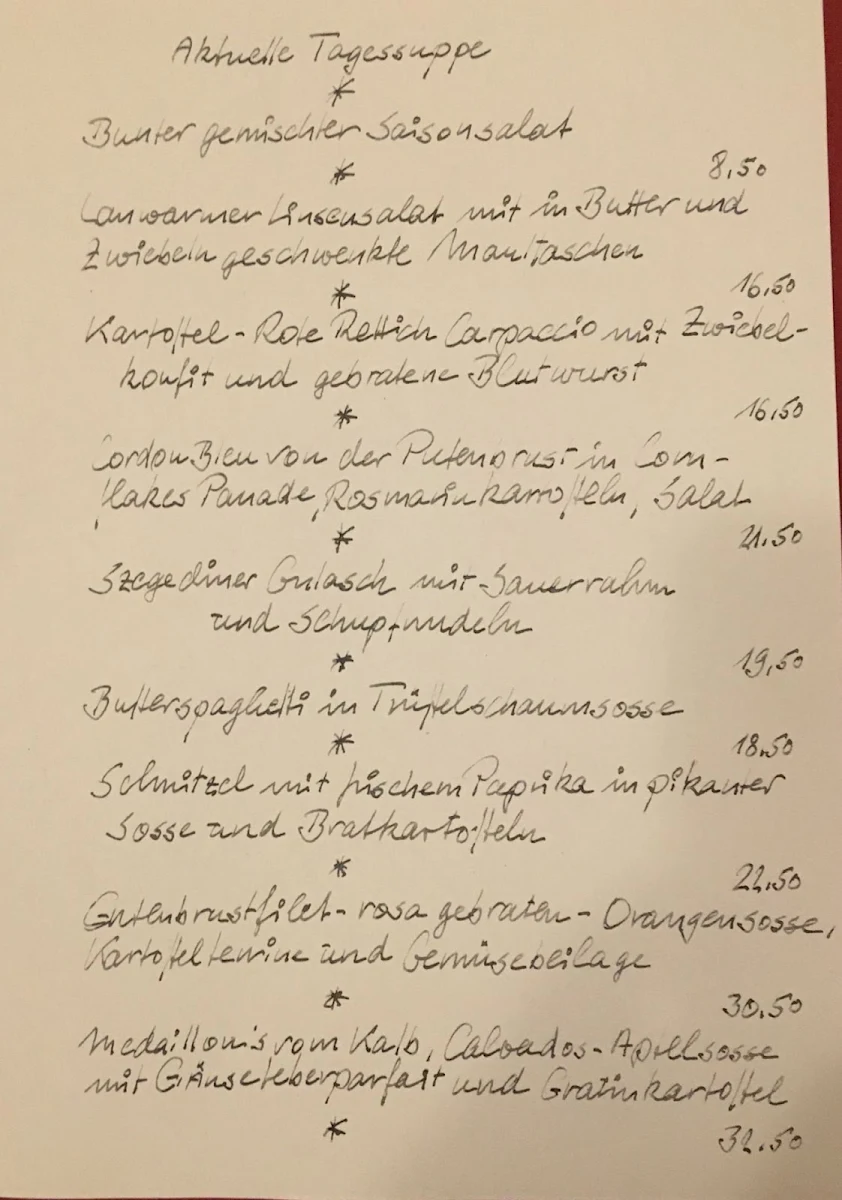 Aktuelle Tagessuppe
*
Bunter gemischter Saisonsalat
* 8,50
Lauwarmer Linsensalat mit in Butter und
Zwiebeln geschwenkte Maultaschen
* 16,50
Kartoffel-Rote Rettich Carpaccio mit Zwiebel-
konfit und gebratene Blutwurst
* 16,50
Cordon Bleu von der Putenbrust in Corn-
flakes Panade, Rosmarinkartoffeln, Salat
* 21.50
Szegediner Gulasch mit Sauerrahm
und Schupfnudeln
* 19,50
Butterspaghetti in Trüffelschaumsosse
* 18.50
Schnitzel mit frischem Paprika in pikanter
Sosse und Bratkartoffeln
* 22.50
Entenbrustfilet - rosa gebraten - Orangensosse,
Kartoffelterrine und Gemüsebeilage
* 30.50
Medaillons vom Kalb, Calvados-Apfelsosse
mit Gänseleberparfait und Gratinkartoffel
* 32.50